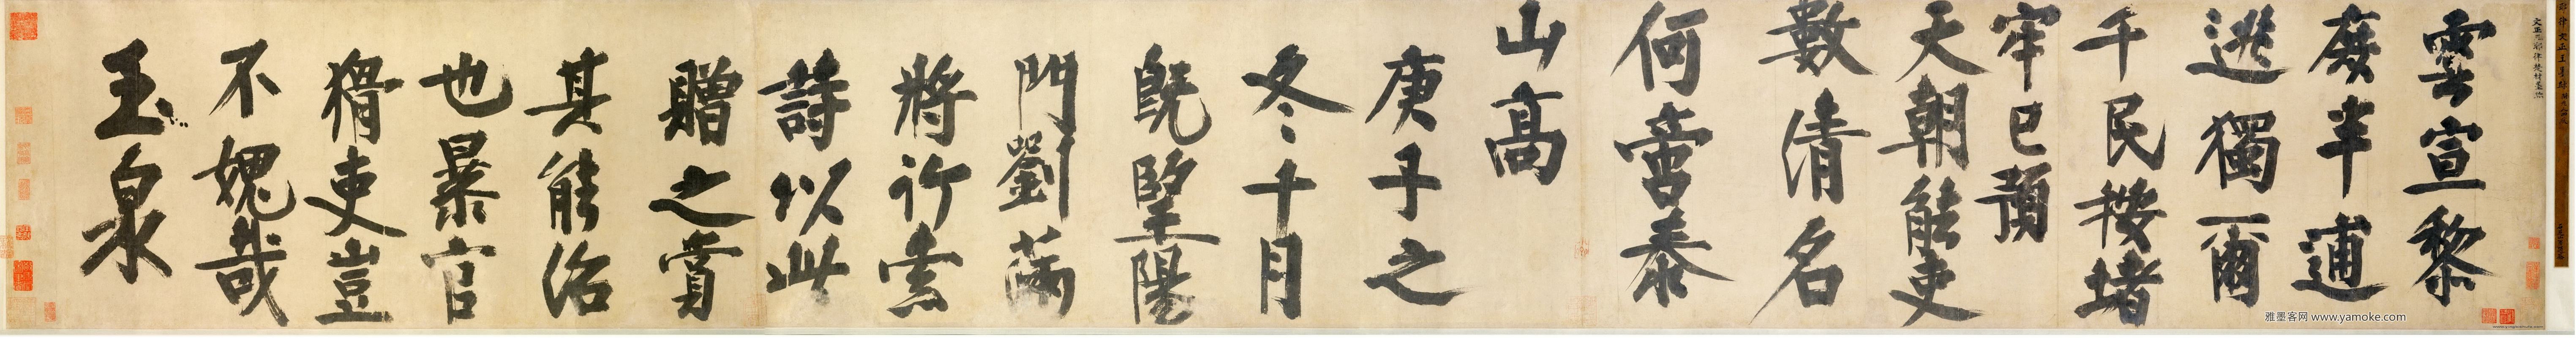 雲宣黎
庶半逋
逃獨爾
千民按堵
牢已預
天朝能吏
數清名
何啻泰
山高
庚子之
冬十月
既望陽
門劉滿
將行索
詩以此
贈之賞
其能治
也暴官
猾吏豈
不媿哉
玉泉
雅墨客网 www.yamoke.com